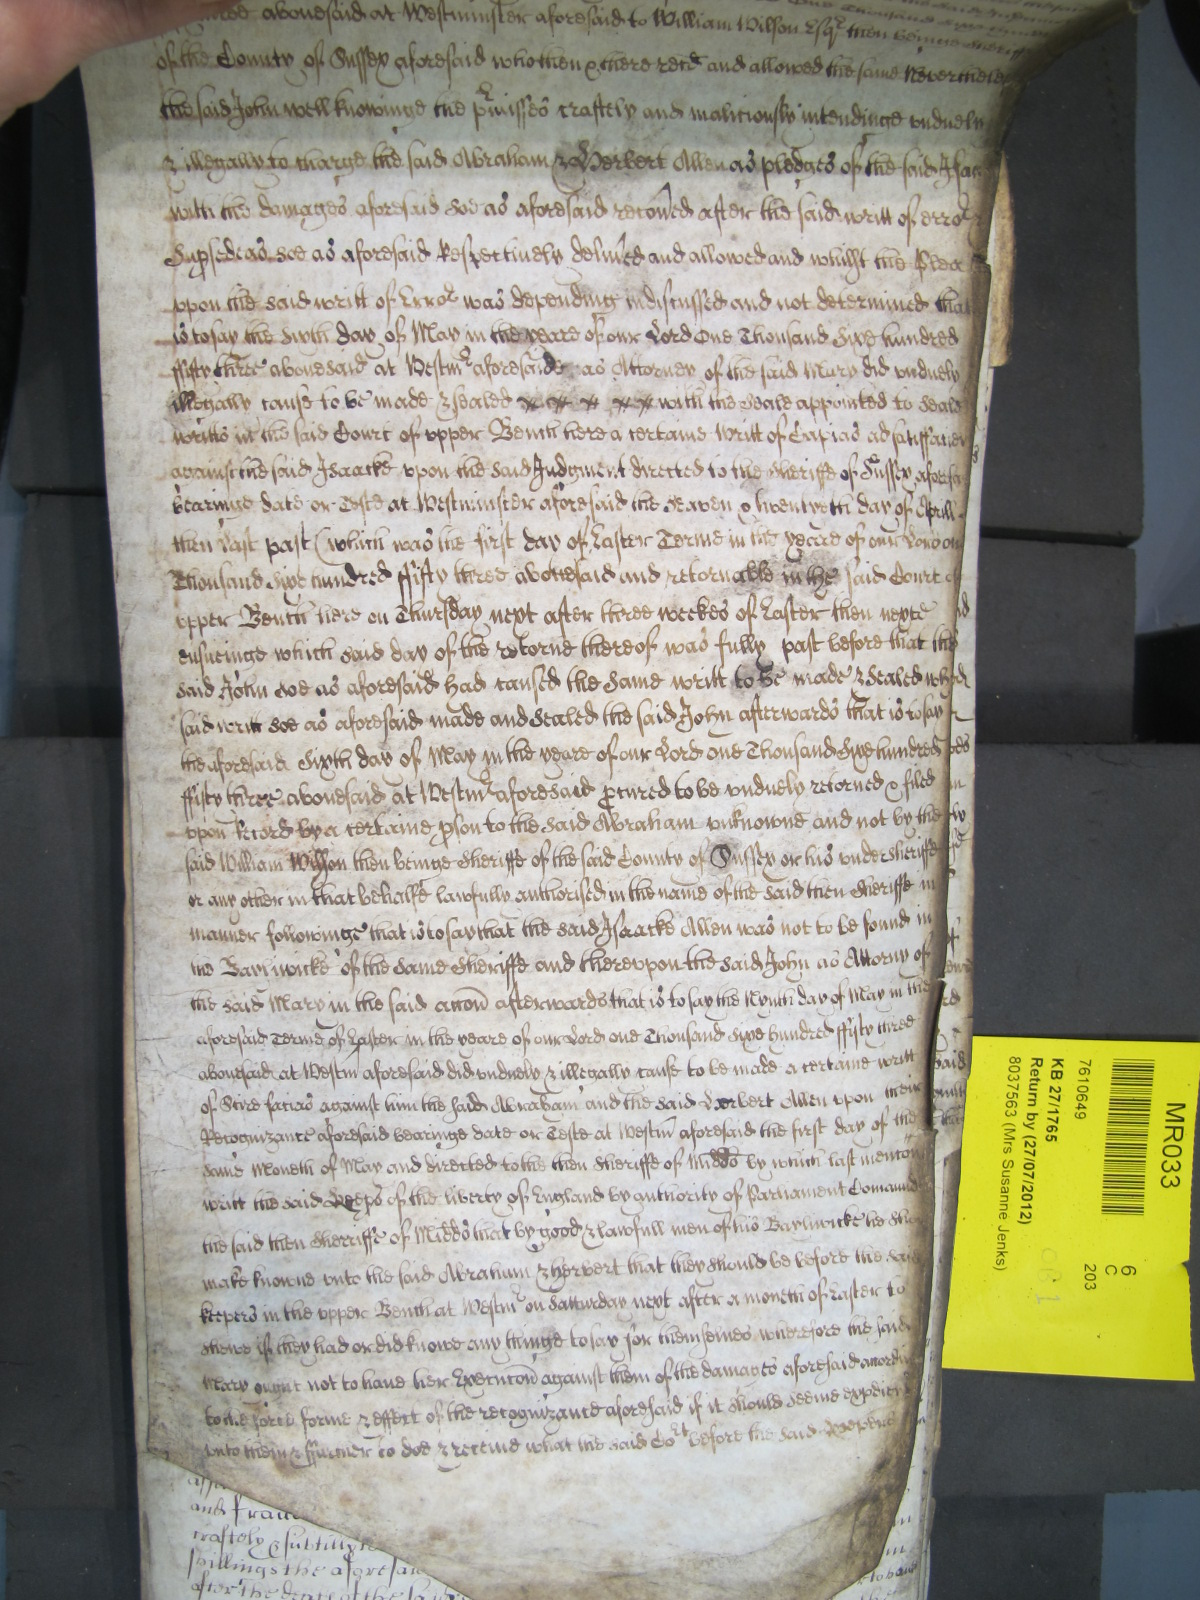 abovesaid at Westminster aforesaid to William Wilson Esqr then beinge Sheriffe
of the County of Sussex aforesaid who then & there recd and allowed the same Neverthelesse
the said John well knowinge the pmisses craftely and maliciously intendinge unduely
& illegally to charge the said Abraham & Herbert Allen as pledges of the said Isaac
with the damages aforesaid soe as aforesaid recoved after the said writt of error
Supsedeas soe as aforesaid Respectively delived and allowed and whilst the Plea
upon the said writt of Error was depending indiscussed and not determined that
is to say the Sixth day of May in the yeare of our Lord One Thousand Sixe hundred
ffifty three abovesaid at Westmr aforesaid as Attorney of the said Mary did unduely
illegally cause to be made & sealed with the Seale appointed to seale
writts in the said Court of upper Bench here a certaine Writt of Capias ad satisfaciend
against the said Isaacke upon the said Judgment directed to the Sheriffe of Sussex aforesaid
bearinge date or Teste at Westminster aforesaid the Seaven & twentyeth day of Aprill
then last past (which was the first day of Easter Terme in the yeare of our Lord on
Thousand Sixe hundred ffifty three abovesaid and retornable in the said Court of
upper Bench here on Thursday next after three weekes of Easter then nexte
ensueinge which said day of the retorne thereof was fully past before that the
said John soe as aforesaid had caused the same writt to be made & sealed which
said writt soe as aforesaid made and sealed the said John afterwards that is to say
the aforesaid Sixth day of May in the yeare of our Lord one Thousand Sixe hundred
ffifty three abovesaid at Westmr aforesaid pcured to be unduely retorned & filed
upon Record by a certaine pson to the said Abraham unknowne and not by the
said William Wilson then beinge Sheriffe of the said County of Sussex or his undersheriffe
or any other in that behalfe lawfully authorised in the name of the said then Sheriffe in
manner followinge that is to say that the said Isaacke Allen was not to be found in
the Bayliwicke of the same Sheriffe and thereupon the said John as Attorny of
the said Mary in the said accon afterwards that is to say the Nynth day of May in the
aforesaid Terme of Easter in the yeare of our Lord one Thousand Sixe hundred ffifty three
abovesaid at Westm aforesaid did unduely & illegally cause to be made a certaine writt
of Scire facias against him the said Abraham and the said Herbert Allen upon their
Recognizance aforesaid bearinge date or Teste at Westm aforesaid the first day of the
same Moneth of May and directed to the then Sheriffe of Midds by which last mencon
writt the said Keeps of the liberty of England by authority of Parliament Comaund
the said then Sherriffe of Midds that by good & lawfull men of his Bayliwicke he
make knowne unto the said Abraham & Herbert that they should be before the said
keepers in the upper Bench at Westmr on Satturday next after a moneth of Easter to
shewe if they had or did knowe any thinge to say for themselves wherefore the said
Mary ought not to have her Execucon against them of the damages aforesaid accordinge
to the force forme & effect of the recognizance aforesaid if it should seeme expedient
unto them & ffurther to doe & receive what the said Cort before the said
and
craftely & subtilly
shillings the aforesaid
after the death of the
MR033
7610649
KB 27/1765
Return by (27/07/2012)
8037563 (Mrs Susanne Jenks)
6
C
203